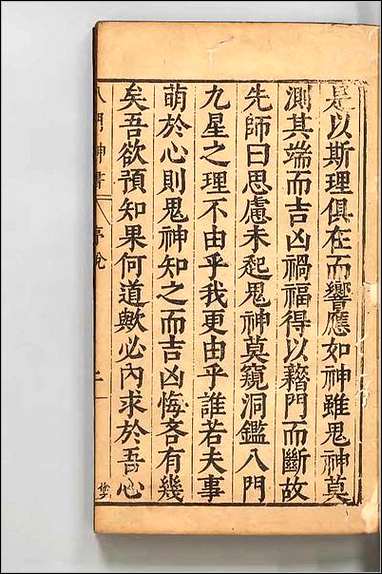 是以斯理俱在而響應如神雖鬼神莫
測其端而吉凶禍福得以藉門而斷故
先師曰思慮未起鬼神莫窺洞鑑八門
九星之理不由乎我更由乎誰若夫事
萌於心則鬼神知之而吉凶悔吝有幾
矣吾欲預知果何道歟必內求於吾心
八門神書 序說 二